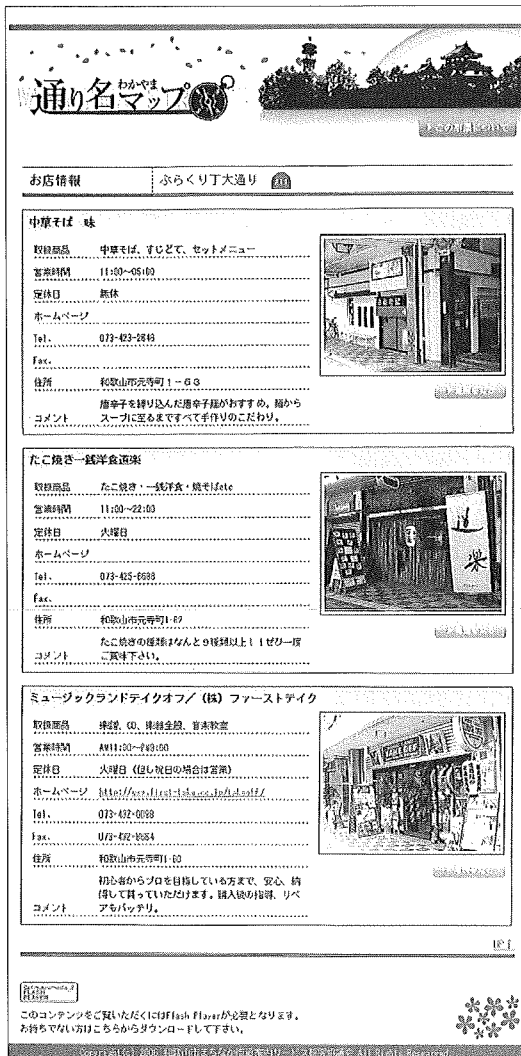 通り名マップ
わかやま
お店情報 ぶらくり丁大通り
中華そば 味
取扱商品 中華そば、すじどて、セットメニュー
営業時間 11:00～05:00
定休日 無休
ホームページ
Tel. 073-423-2646
Fax.
住所 和歌山市元寺町1-63
唐辛子を練り込んだ唐辛子麺がおすすめ。麺から
コメント スープに至るまですべて手作りのこだわり。
たこ焼き一銭洋食道楽
取扱商品 たこ焼き・一銭洋食・焼そばetc
営業時間 11:00～22:00
定休日 火曜日
ホームページ
Tel. 073-425-8688
Fax.
住所 和歌山市元寺町1-67
たこ焼きの種類はなんと9種類以上！！ぜひ一度
コメント ご賞味下さい。
道楽
ミュージックランドテイクオフ／（株）ファーストテイク
取扱商品 楽譜、CD、楽器全般、音楽教室
営業時間
定休日 火曜日（但し祝日の場合は営業）
ホームページ
Tel.
Fax.
住所 和歌山市元寺町1-60
初心者からプロを目指している方まで、安心、納
得して買っていただけます。購入後の指導、リペ
コメント アもバッチリ。
UP↑
このコンテンツをご覧いただくにはFlash Playerが必要となります。
お持ちでない方はこちらからダウンロードして下さい。